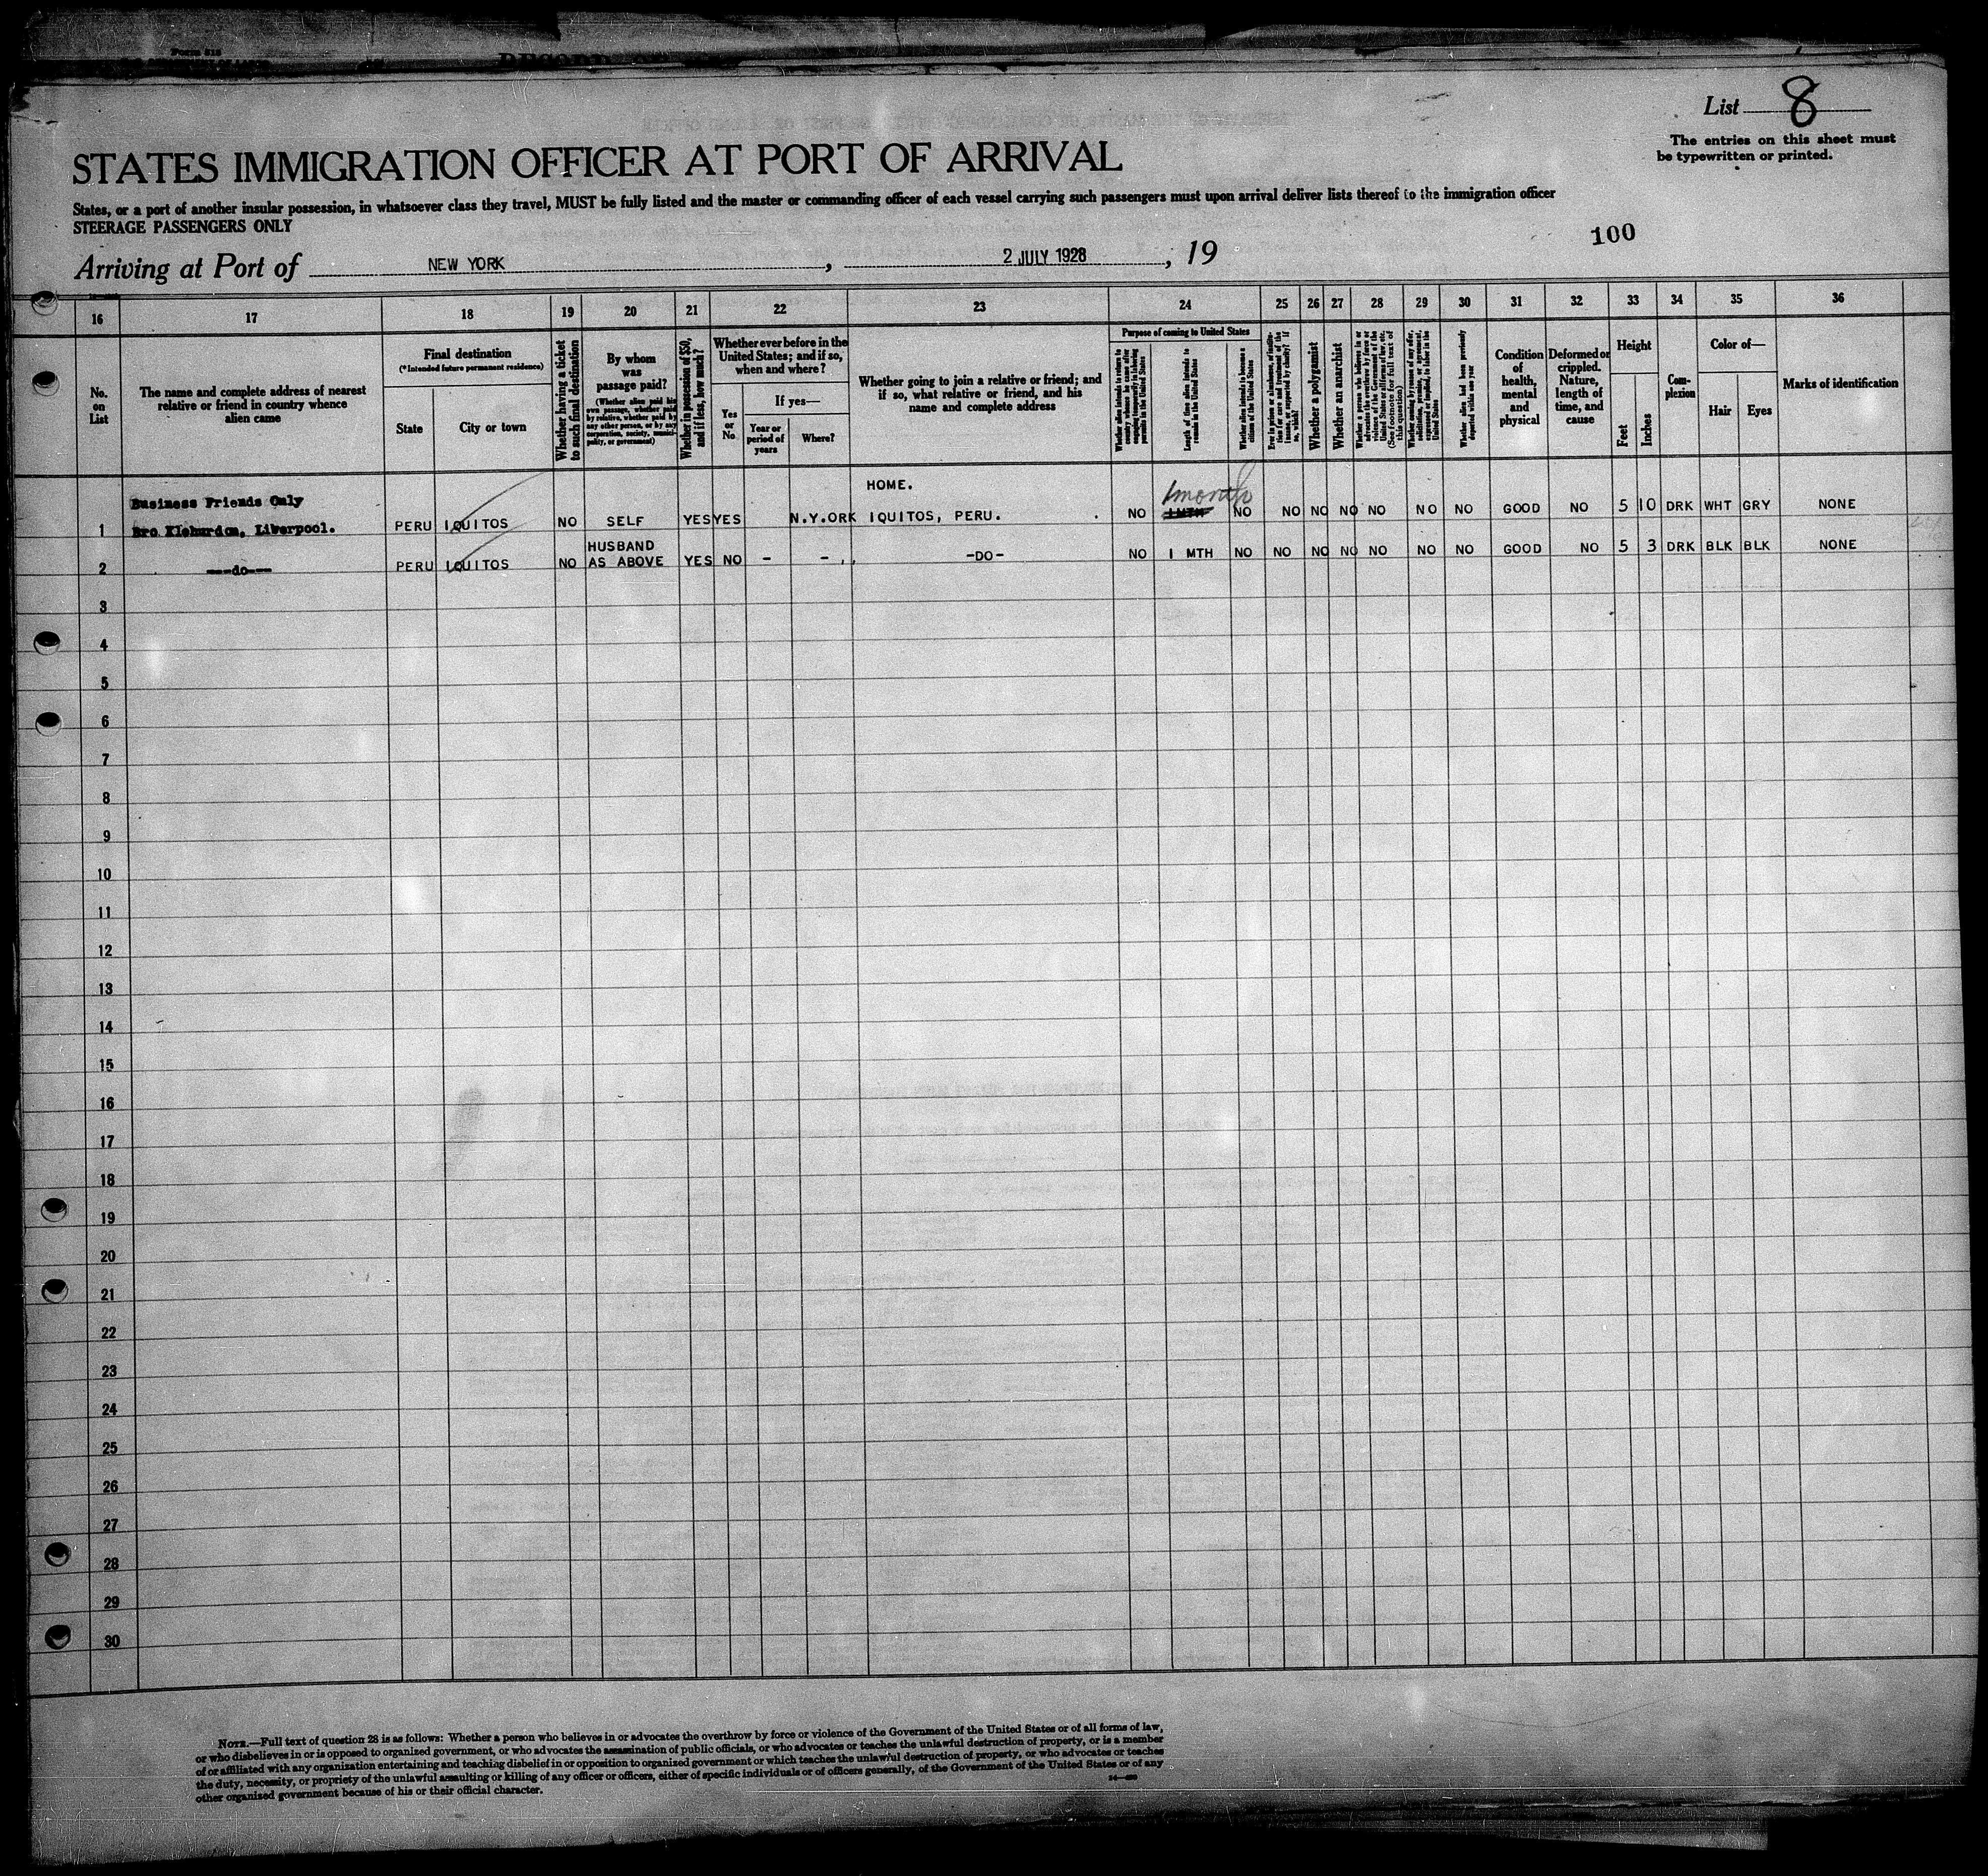 Form 518
List 8
The entries on this sheet must
be typewritten or printed.
STATES IMMIGRATION OFFICER AT PORT OF ARRIVAL
States, or a port of another insular possession, in whatsoever class they travel, MUST be fully listed and the master or commanding officer of each vessel carrying such passengers must upon arrival deliver lists thereof to the immigration officer
STEERAGE PASSENGERS ONLY
100
Arriving at Port of NEW YORK , 2 JULY 1928 , 19
16 17 18 19 20 21 22 23 24 25 26 27 28 29 30 31 32 33 34 35 36
No. on List
The name and complete address of nearest relative or friend in country whence alien came
Final destination
(*Intended future permanent residence)
State
City or town
Whether having a ticket to such final destination
By whom was passage paid?
(Whether alien paid his own passage, whether paid by relative, whether paid by any other person, or by any corporation, society, municipality, or government)
Whether in possession of $50, and if less, how much?
Whether ever before in the United States; and if so, when and where?
Yes or No
If yes—
Year or period of years
Where?
Whether going to join a relative or friend; and if so, what relative or friend, and his name and complete address
Purpose of coming to United States
Whether alien intends to return to country whence he came after engaging temporarily in laboring pursuits in the United States
Length of time alien intends to remain in the United States
Whether alien intends to become a citizen of the United States
Ever in prison or almshouse, or institution for care and treatment of the insane, or supported by charity? If so, which?
Whether a polygamist
Whether an anarchist
Whether a person who believes in or advocates the overthrow by force or violence of the Government of the United States or all forms of law, etc. (See footnote for full text of this question)
Whether coming by reason of any offer, solicitation, promise, or agreement, expressed or implied, to labor in the United States
Whether alien had been previously deported within one year
Condition of health, mental and physical
Deformed or crippled. Nature, length of time, and cause
Height
Feet
Inches
Complexion
Color of—
Hair
Eyes
Marks of identification
HOME.
Business Friends Only
1 month
1 Bro Kleburdon, Liverpool. PERU IQUITOS NO SELF YES YES N.Y.ORK IQUITOS, PERU. NO 1 MTH NO NO NO NO NO NO NO GOOD NO 5 10 DRK WHT GRY NONE
HUSBAND
2 ---do--- PERU IQUITOS NO AS ABOVE YES NO - - -DO- NO 1 MTH NO NO NO NO NO NO NO GOOD NO 5 3 DRK BLK BLK NONE
3
4
5
6
7
8
9
10
11
12
13
14
15
16
17
18
19
20
21
22
23
24
25
26
27
28
29
30
NOTE.—Full text of question 28 is as follows: Whether a person who believes in or advocates the overthrow by force or violence of the Government of the United States or of all forms of law,
or who disbelieves in or is opposed to organized government, or who advocates the assassination of public officials, or who advocates or teaches the unlawful destruction of property, or is a member
of or affiliated with any organization entertaining and teaching disbelief in or opposition to organized government or which teaches the unlawful destruction of property, or who advocates or teaches
the duty, necessity, or propriety of the unlawful assaulting or killing of any officer or officers, either of specific individuals or of officers generally, of the Government of the United States or of any
other organized government because of his or their official character.